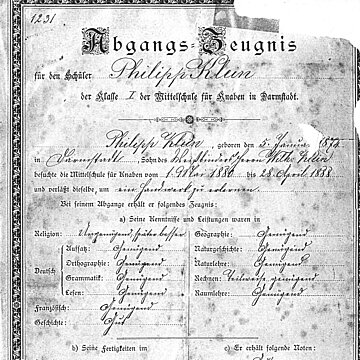 1231
Abgangs-Zeugnis
für den Schüler Philipp Klein
der Klasse I der Mittelschule für Knaben in Darmstadt.
Philipp Klein, geboren den 5. Januar 1874
in Darmstadt, Sohn des Herrn Wilh. Klein
besuchte die Mittelschule für Knaben vom 1. Mai 1880 bis 28. April 1888
und verläßt dieselbe, um ein Handwerk zu erlernen.
Bei seinem Abgange erhält er folgendes Zeugnis:
a) Seine Kenntnisse und Leistungen waren in
Religion: Ungenügend, später besser
Deutsch
Aufsatz: Genügend
Orthographie: Genügend
Grammatik: Genügend
Lesen: Genügend
Französisch: Genügend
Geschichte: Gut
Geographie: Genügend
Naturgeschichte: Genügend
Naturlehre: Genügend
Rechnen: Teilweise genügend
Raumlehre: Genügend
b) Seine Fertigkeiten im
c) Er erhält folgende Noten: